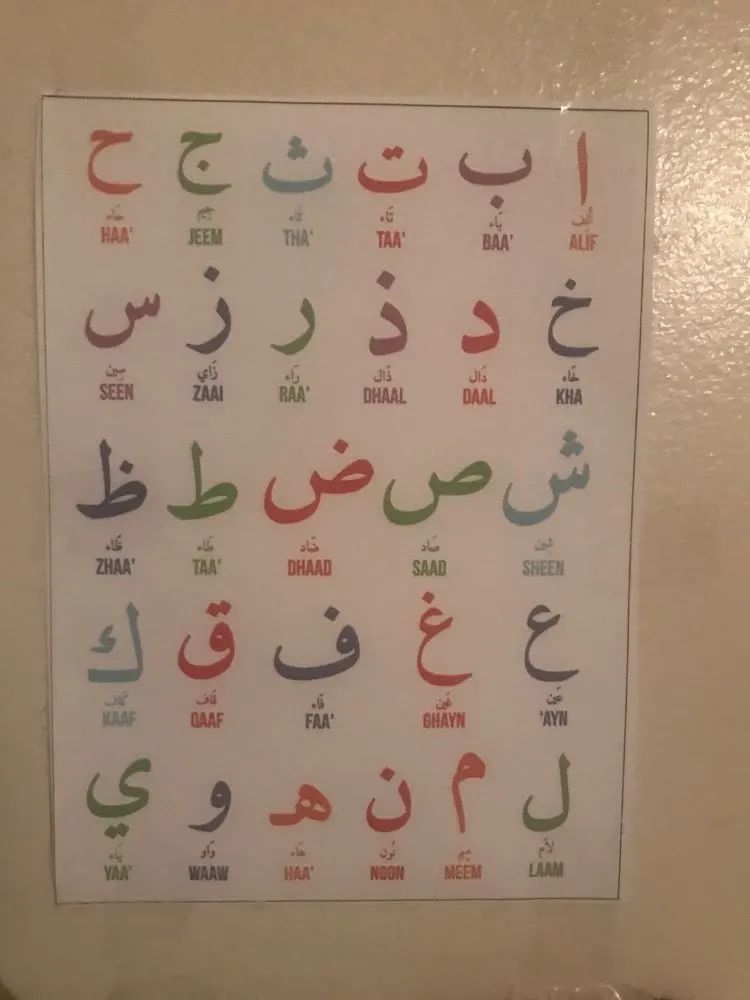 ا ب ت ث ج ح
أَلِف بَاء تَاء ثَاء جِيم حَاء
ALIF BAA' TAA' THA' JEEM HAA'
خ د ذ ر ز س
خَاء دَال ذَال رَاء زَاي سِين
KHA DAAL DHAAL RAA' ZAAI SEEN
ش ص ض ط ظ
شِين صَاد ضَاد طَاء ظَاء
SHEEN SAAD DHAAD TAA' ZHAA'
ع غ ف ق ك
عَين غَين فَاء قَاف كَاف
'AYN GHAYN FAA' QAAF KAAF
ل م ن ه و ي
لاَم مِيم نُون هَاء وَاو يَاء
LAAM MEEM NOON HAA' WAAW YAA'